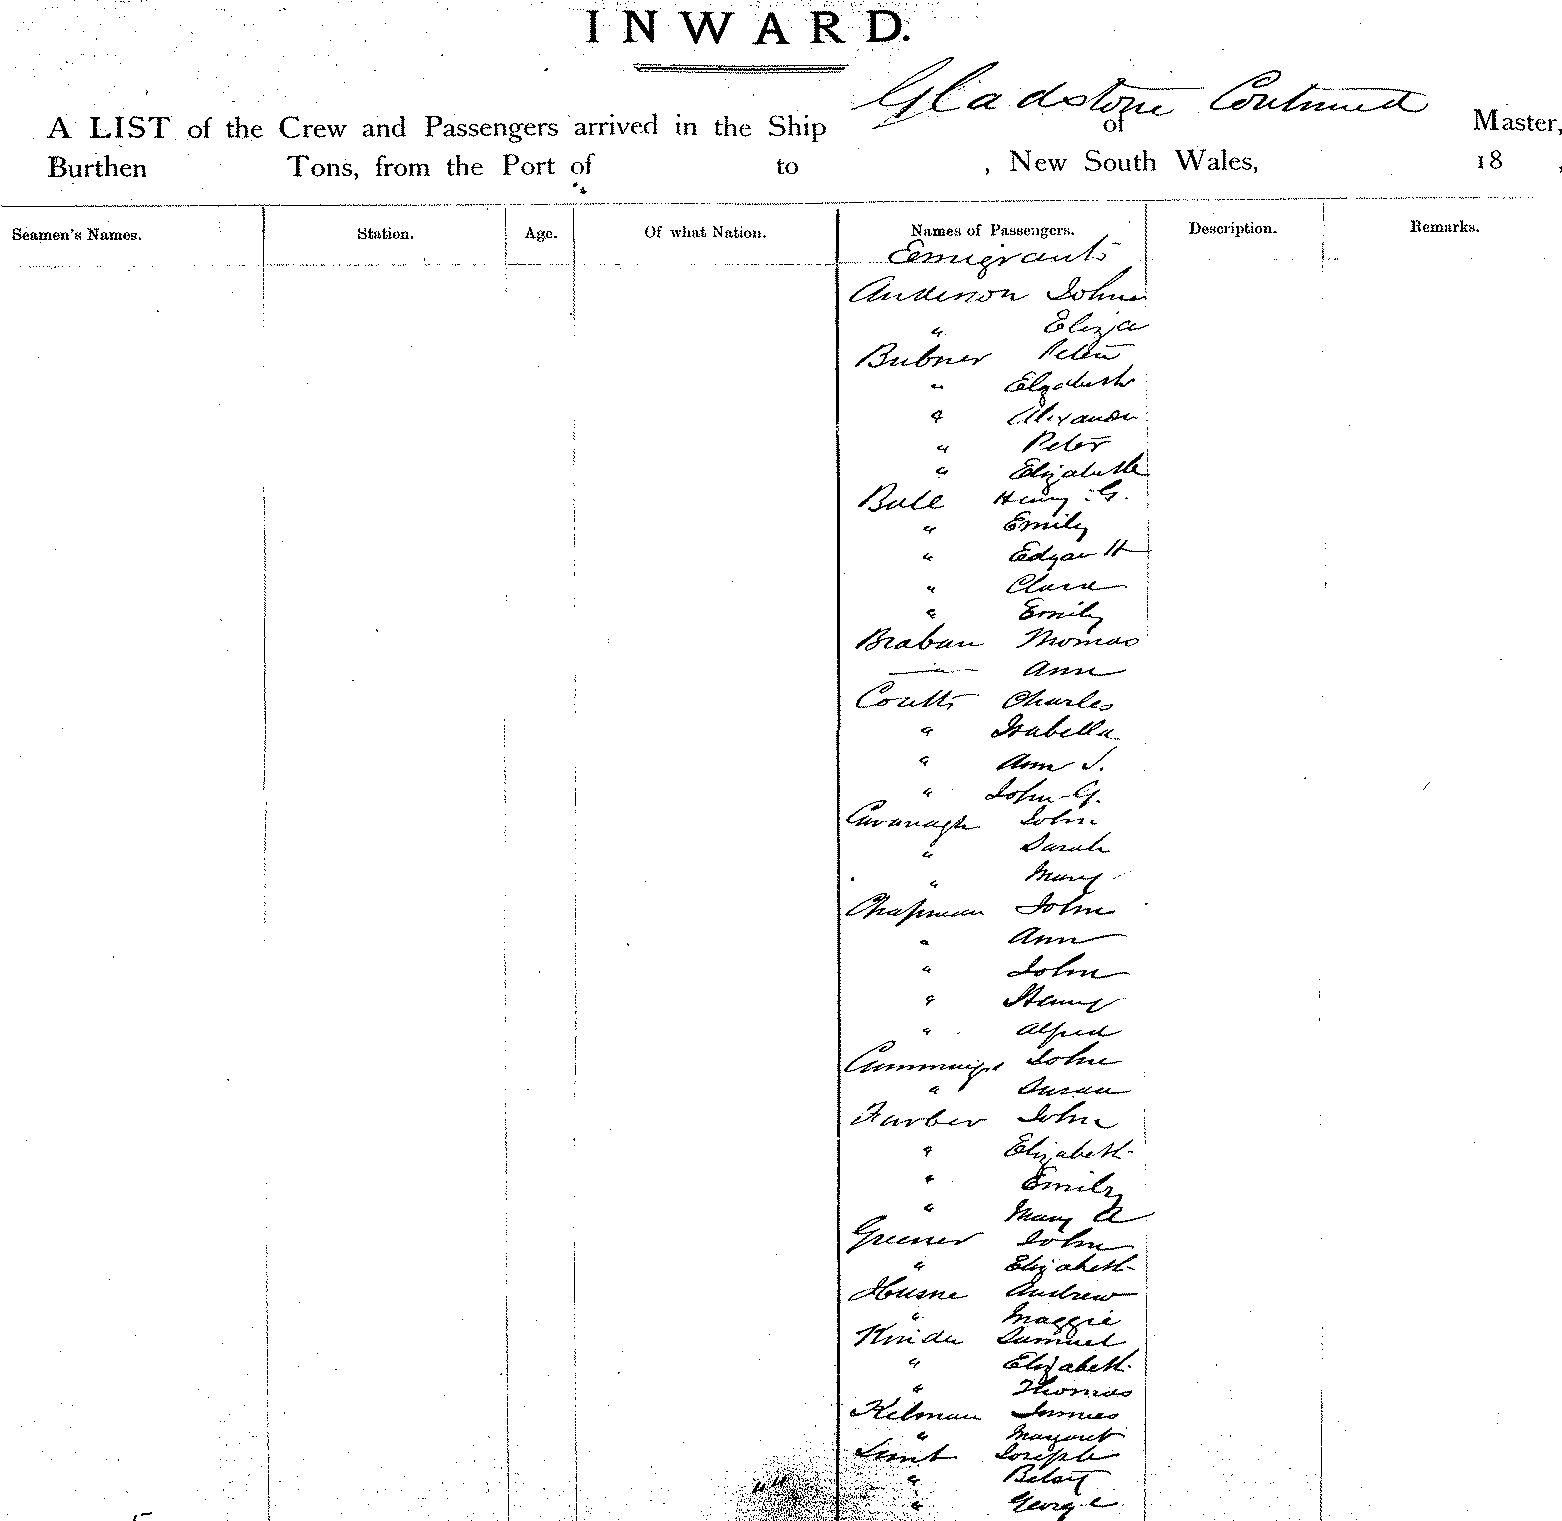 INWARD.
Gladstone Continued
A LIST of the Crew and Passengers arrived in the Ship of Master,
Burthen Tons, from the Port of to , New South Wales, 18 ,
Seamen's Names. Station. Age. Of what Nation. Names of Passengers. Description. Remarks.
Emigrants
Anderson John
" Eliza
Bubner Peter
" Elizabeth
" Alexander
" Peter
" Elizabeth
Bull Henry G.
" Emily
" Edgar H
" Clara
" Emily
Braban Thomas
" Ann
Coutts Charles
" Isabella
" Ann J.
" John G.
Cavanagh John
" Sarah
" Mary
Chapman John
" Ann
" John
" Henry
" Alfred
Cummings John
" Susan
Farber John
" Elizabeth
" Emily
" Mary A
Greener John
" Elizabeth
Hume Andrew
" Maggie
Kinder Samuel
" Elizabeth
" Thomas
Kelman James
" Margaret
Joseph
" Betsy
" George